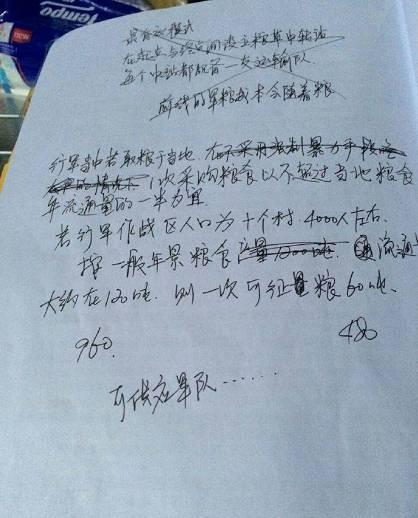 Tempo
new
在起点与终点间设立粮草中转站
每个中站都既有一支运输队
军粮成本会随着粮
行军当中若取粮于当地,在不采用强制暴力手段
的情况下 1次采购粮食以不超过当地粮食
年流通量的一半为宜.
若行军作战区人口为十个村.4000人左右.
按一般年景粮食产量1200吨. 流通
大约在120吨. 则一次可征粮60吨.
960.
480
可供应军队……